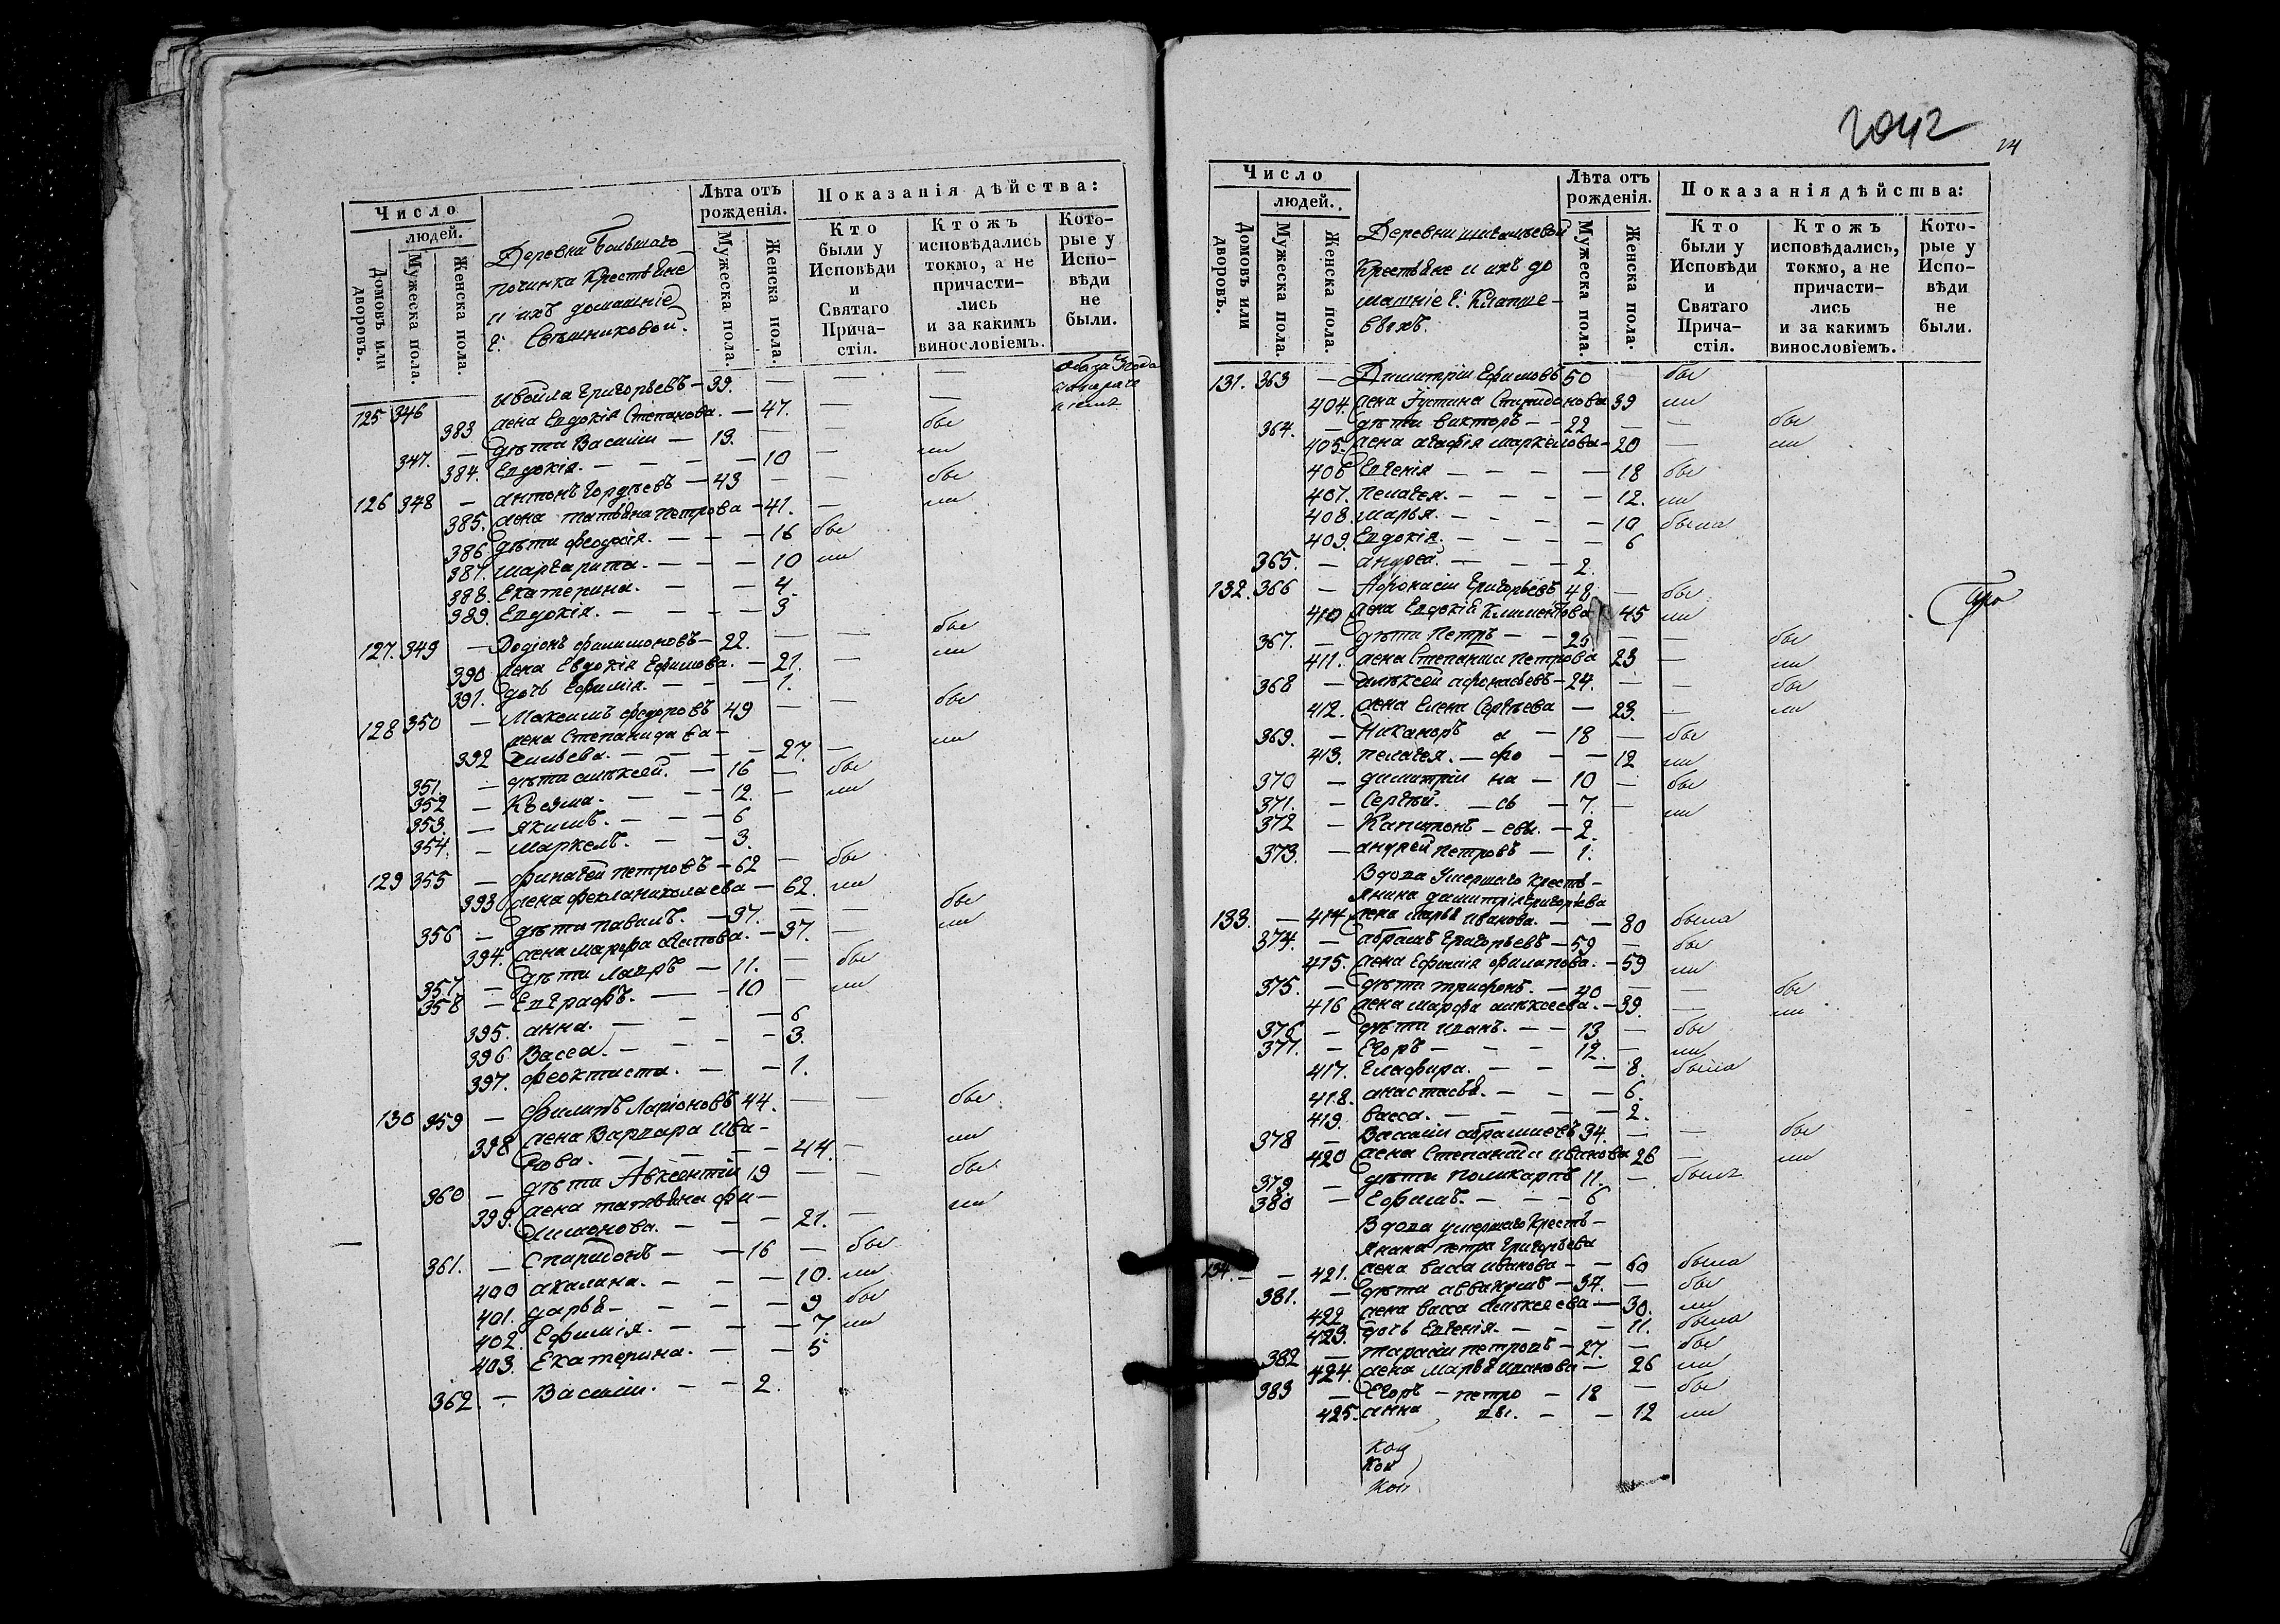 Число
людей.
Домовъ или дворовъ.
Мужеска пола.
Женска пола.
Деревни Большаго
починка Крестьяне
и ихъ домашніе
Лѣта отъ рожденія.
Мужеска пола.
Женска пола.
Показанія дѣйства:
Кто были у Исповѣди и Святаго Прича-стія.
Ктожъ исповѣдались токмо, а не причасти-лись и за какимъ винословіемъ.
Кото-рые у Испо-вѣди не были.
125 346 Григорьевъ — 39. — — —
383 жена Евдокія Степанова. — 47. — —
347. — дѣти Василій — 13. — — бы
384. Евдокія. — — — — 10 — ли
126 348 — Антонъ Гордѣевъ — 43 — — бы
385. жена Татьяна Петрова — 41. — ли
386. дѣти Феодосія. — — — 16 бы
387. Маргарита. — — — 10 ли
388. Екатерина. — — 4.
389. Евдокія. — — — — 3
127. 349 — Родіонъ Филимоновъ — 22. — — бы
390 жена Евдокія Ефимова. — 21. — ли
391. дочь Ефимія. — — — 1.
128 350 — Максимъ Федоровъ 49 — — бы
жена Степанида Ва-
392 сильева. — — — — 27. — ли
351. — дѣти Алексѣй. — 16 — бы
352 — Козьма. — — 12. — ли
353. — Якимъ. — — — 6
354. — Маркелъ. — — 3.
129 355 — Финагей Петровъ — 62 — бы
393 жена Фекла Николаева — 62. ли
356 — дѣти Павелъ. — 37. — — бы
394. жена Марфа — 37. — ли
357. — дѣти Лавръ — 11. — бы
358 — Евграфъ. — — 10 — ли
395. Анна. — — — 6
396. Васса. — — — 3.
397. Феоктиста. — — 1.
130 359 — Филипъ Ларіоновъ 44. — — бы
398 жена Варвара Ива-
нова. — — — — 44. — ли
360 — дѣти Авксентій 19 — — бы
399. жена Татьяна Фи-
лимонова. — — — 21. — ли
361. — Спиридонъ — — 16 — бы
400 Акилина. — — — 10. ли
401. Дарья — — — — 9 бы
402. Ефимія. — — — 7. ли
403. Екатерина. — — 5
362. — Василій. — — 2.
2042
24
Число
людей.
Домовъ или дворовъ.
Мужеска пола.
Женска пола.
Деревни
Крестьяне и ихъ до
машніе
Лѣта отъ рожденія.
Мужеска пола.
Женска пола.
Показанія дѣйства:
Кто были у Исповѣди и Святаго Прича-стія.
Ктожъ исповѣдались, токмо, а не причасти-лись и за какимъ винословіемъ.
Кото-рые у Испо-вѣди не были.
131. 363 — Димитрій Ефимовъ 50 — бы
404. жена Устина Спиридонова 39 ли
364. — дѣти Викторъ — — 22 — — бы
405. жена Агафія Маркелова — 20 — ли
406 Евгенія — — — — 18 бы
407. Пелагея. — — — — 12. ли
408. Марья. — — — — 10 была
409. Евдокія. — — — — 6
365. — Андрей. — — — 2.
132. 366 — Афонасій Григорьевъ 48 — бы
410 жена Евдокія Климентова 45 ли
367. — дѣти Петръ — — 25 — — бы
411. жена Степанида Петрова 23 — ли
368 — Алексѣй Афонасьевъ — 24. — — бы
412. жена Елена Сергѣева — 23. — ли
369. — Никаноръ а — 18 — бы
413. Пелагея. — фо — — 12 ли
370 — Димитрій на — 10 — бы
371. — Сергѣй. — сь — 7. — ли
372 — Капитонъ — евы. — 2.
373. — Андрей Петровъ — 1.
Вдова умершаго Кресть-
янина Димитрія Григорьева
133. — 414 жена Марья Иванова. — — 80 была
374. — Абрамъ Григорьевъ — 59 — бы
415. жена Ефимія Филипова. — 59 ли
375. — дѣти Трифонъ. — 40 — — бы
416 жена Марфа Алексѣева. — 39. — ли
376 — дѣти Иванъ. — — 13 — бы
377. — Егоръ — — — 12. — ли
417. Глафира. — — — 8. была
418. Анастасья. — — — 6.
419. Васса. — — — — 2.
378 — Василій Абрамовъ 34. — — бы
420 жена Степанида Иванова 26 — ли
379. — дѣти Поликарпъ 11. — былъ
380 — Ефимъ. — — — 6
Вдова умершаго Кресть-
янина Петра Григорьева
134. — — 421. жена Васса Иванова — — 60 была
381. — дѣти Аввакумъ — 37. — бы
422 жена Васса Алексѣева — 30. ли
423. дочь Евгенія. — — — 11. была
382 — Тарасій Петровъ — 27. — бы
424. жена Марья Иванова — 26 ли
383 — Егоръ — петро — 18 — бы
425. Анна вы. — — 12 ли